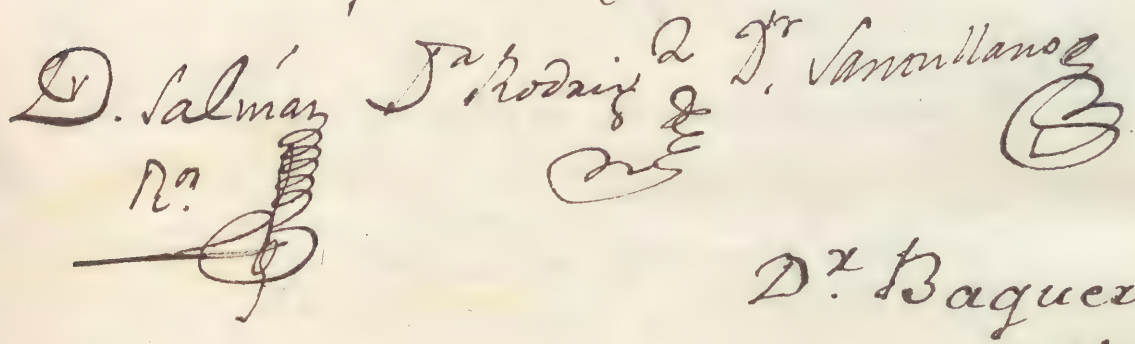 Dr. Salmán Dr. Rodrigz Dr. Santullano
Rr.
Dr. Baquer